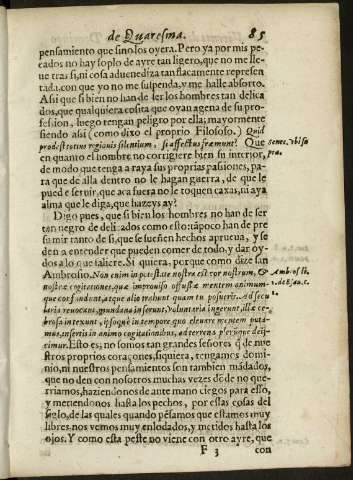 de Quaresma. 85
pensamiento que sino los oyera. Pero ya por mis pe
cados no hay soplo de ayre tan ligero, que no me lle-
ue tras si, ni cosa aduenediza tan flacamente represen
tada, con que yo no me suspenda, y me halle absorto.
Asi que si bien no han de ser los hombres tan delica
dos, que qualquiera cosita que oyan agena de su pro-
fesion, luego tengan peligro por ella; mayormente
siendo asi (como dixo el proprio Filosofo.) Quid
prodest totius regionis silentium, si affectus fræmunt? Que
en quanto el hombre no corrigiere bien su interior,
de modo que tenga a raya sus proprias pasiones, pa-
ra que de alla dentro no le hagan guerra, de que le
puede seruir, que aca fuera no le toquen caxas, ni aya
alma que le diga, que hazeys ay?
Senec. vbi su
pra.
Digo pues, que si bien los hombres no han de ser
tan negro de delicados como esto: tãpoco han de pre
sumir tanto de si, que se sueñen hechos a prueua, y se
den a entender que pueden comer de todo, y dar oy-
dos a lo que saliere. Si quiera, porque como dize san
Ambrosio. Non enim in potestate nostra est cor nostrum, &
nostræ cogitationes, quæ improuiso offusæ mentem animum-
que confundunt, atque alio trahunt quam tu posueris. Ad secu
laria reuocant, mundana inserunt, voluptaria ingerunt, illæce
brosa intexunt, ipsoque in tempore, quo eleuare mentem para
mus, insertis in animo cogitationibus, ad terrena plerumque dei-
cimur. Esto es; no somos tan grandes señores de nue
stros proprios coraçones, siquiera, tengamos domi-
nio, ni nuestros pensamientos son tambien mãdados,
que no den con nosotros muchas vezes dõde no que-
rriamos, haziendonos de ante mano ciegos para esso,
y metiendonos hasta los pechos, por estas cosas del
siglo, de las quales quando pẽsamos que estamos muy
libres nos vemos muy enlodados, y metidos hasta los
ojos. Y como esta peste no viene con otro ayre, que
Ambros. li.
F 3 con